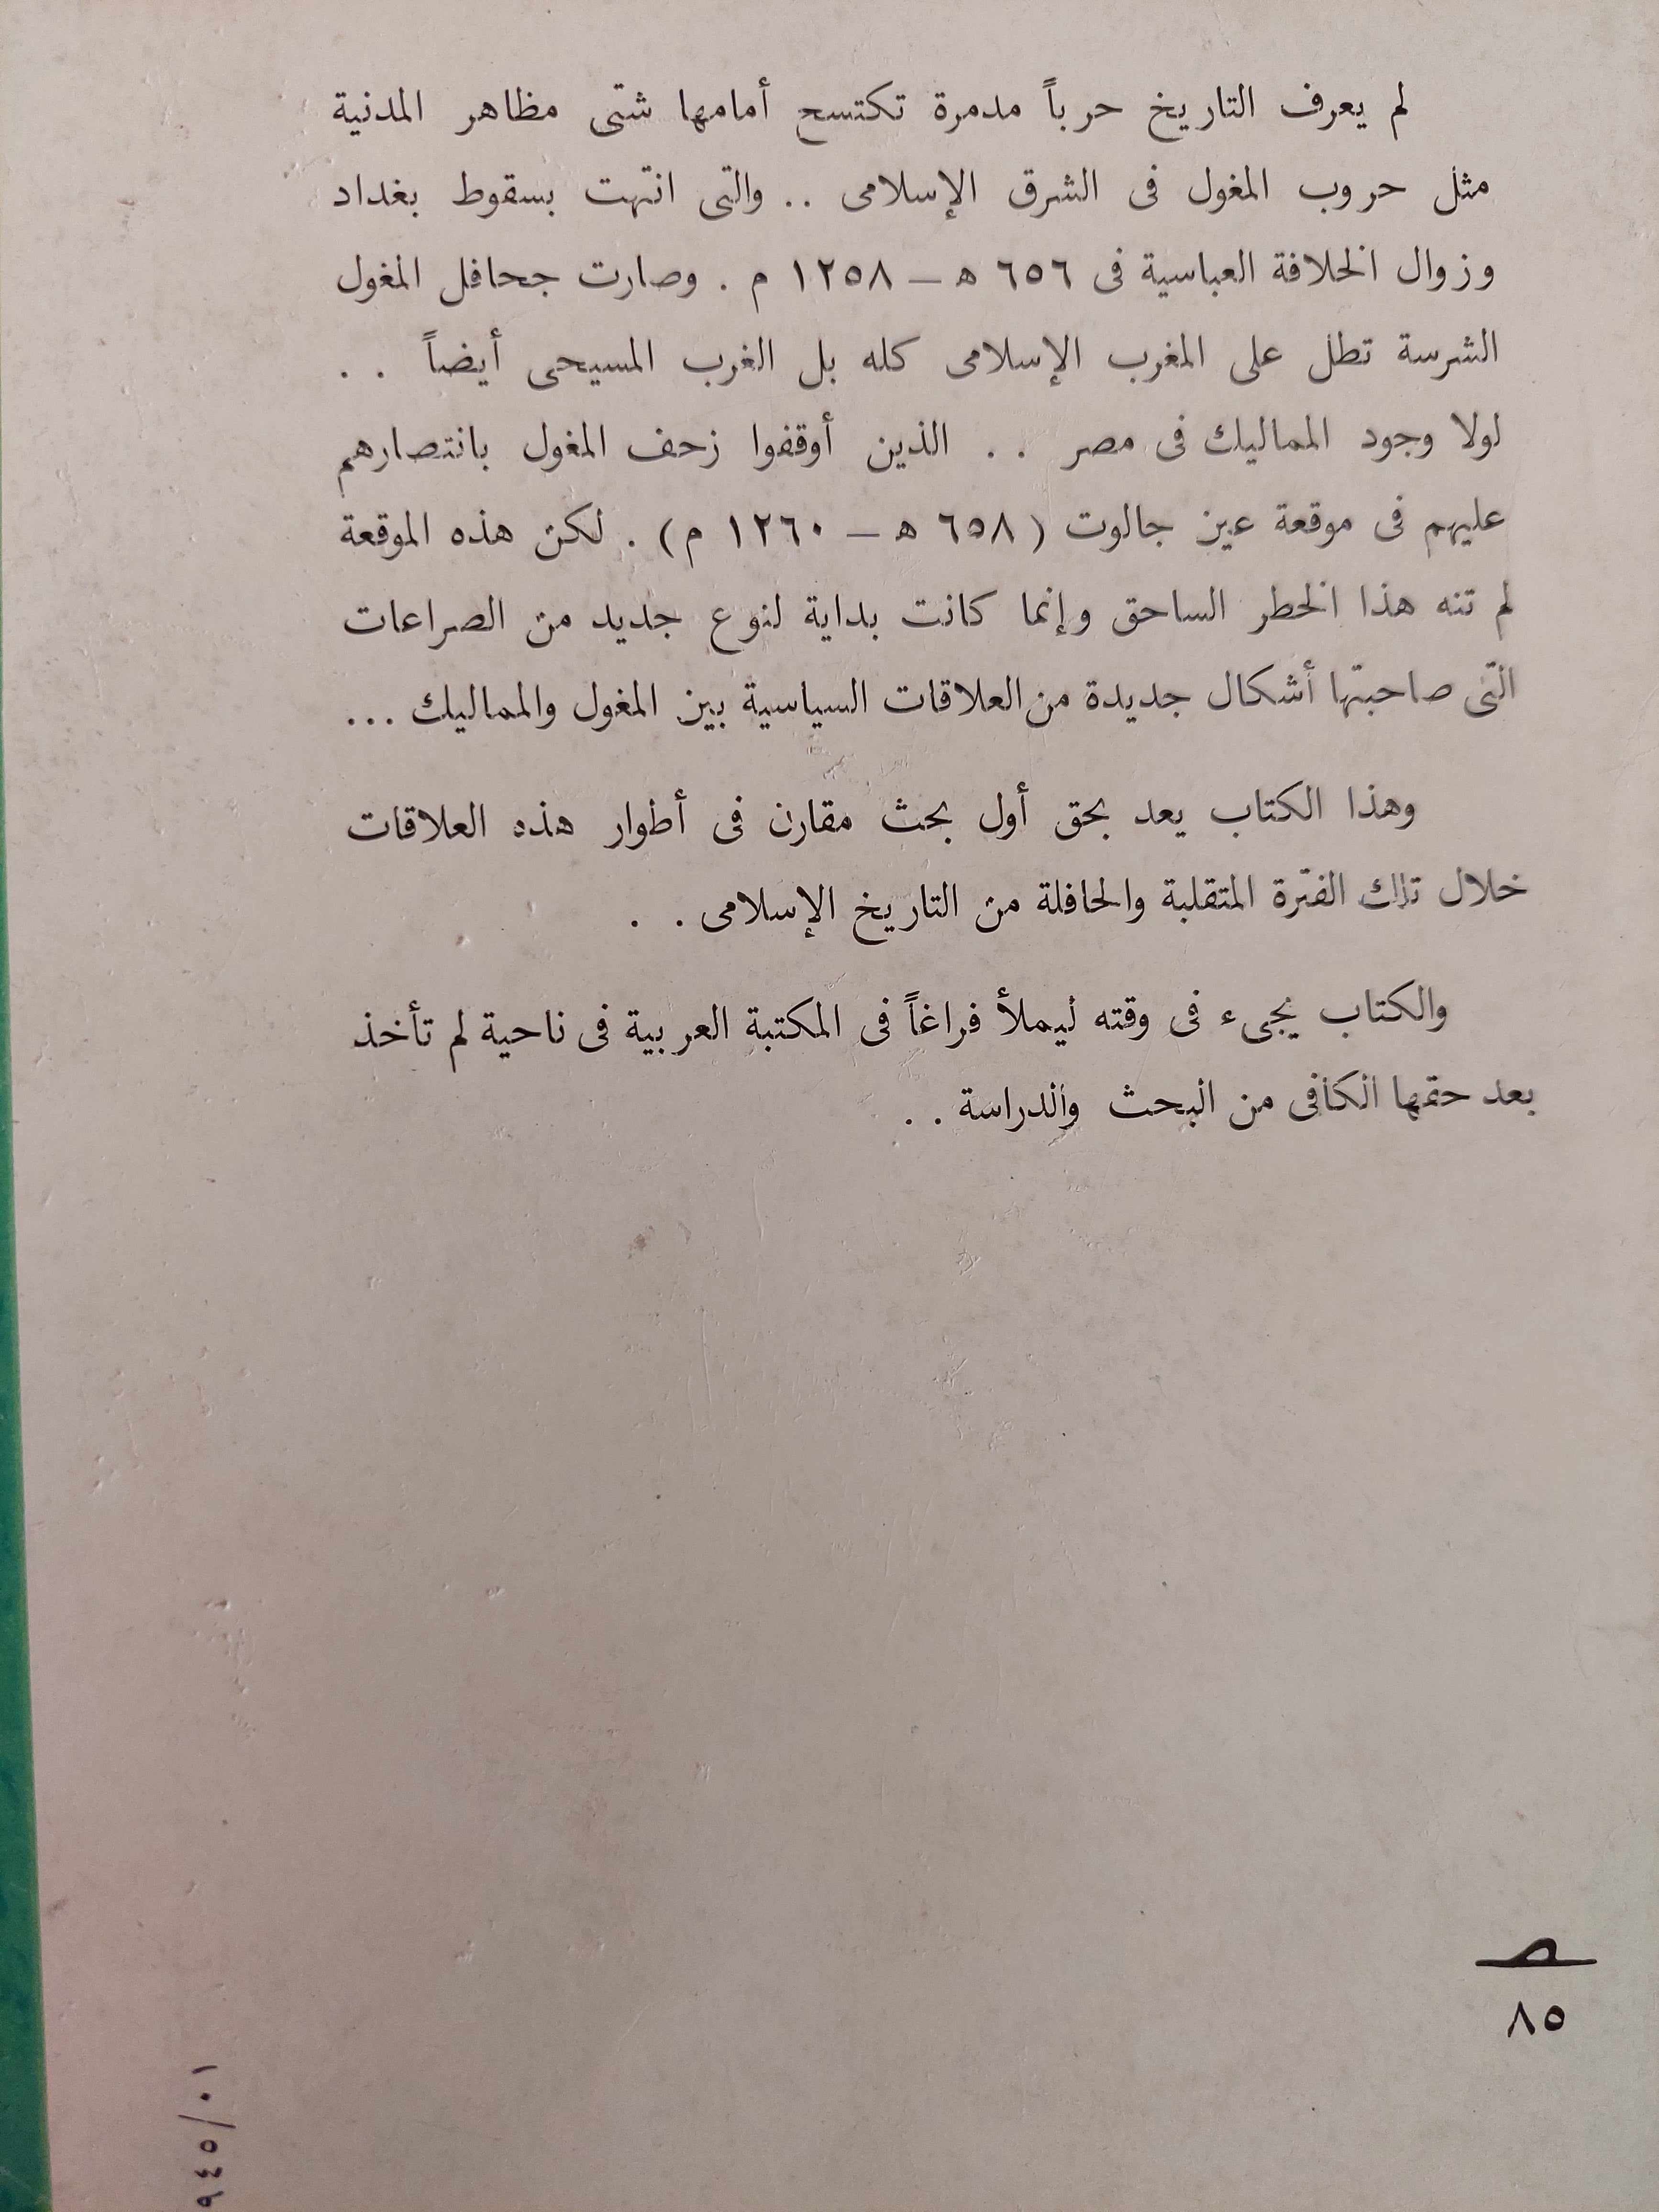 لم يعرف التاريخ حرباً مدمرة تكتسح أمامها شتى مظاهر المدنية
مثل حروب المغول فى الشرق الإسلامى .. والتى انتهت بسقوط بغداد
وزوال الخلافة العباسية فى ٦٥٦ هـ – ١٢٥٨ م . وصارت جحافل المغول
الشرسة تطل على المغرب الإسلامى كله بل الغرب المسيحى أيضاً . .
لولا وجود المماليك فى مصر . . الذين أوقفوا زحف المغول بانتصارهم
عليهم فى موقعة عين جالوت ( ٦٥٨ هـ – ١٢٦٠ م ) . لكن هذه الموقعة
لم تنه هذا الخطر الساحق وإنما كانت بداية لنوع جديد من الصراعات
التى صاحبتها أشكال جديدة من العلاقات السياسية بين المغول والمماليك ...
وهذا الكتاب يعد بحق أول بحث مقارن فى أطوار هذه العلاقات
خلال تلك الفترة المتقلبة والحافلة من التاريخ الإسلامى . .
والكتاب يجىء فى وقته ليملأ فراغاً فى المكتبة العربية فى ناحية لم تأخذ
بعد حقها الكافى من البحث والدراسة . .
٨٥
٩٤٥/٠١